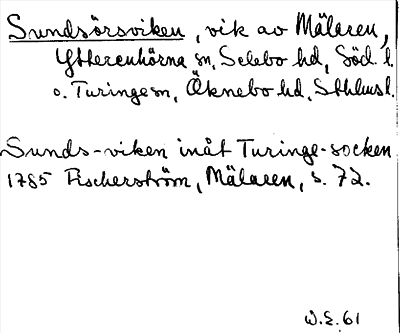 Sundsörsviken, vik av Mälaren,
Ytterenhörna sn, Selebo hd, Söd. l
o. Turinge sn, Öknebo hd, Sthlms l.
Sunds-viken inåt Turinge-socken
1785 Fischerström, Mälaren, s. 72.
W.E. 61